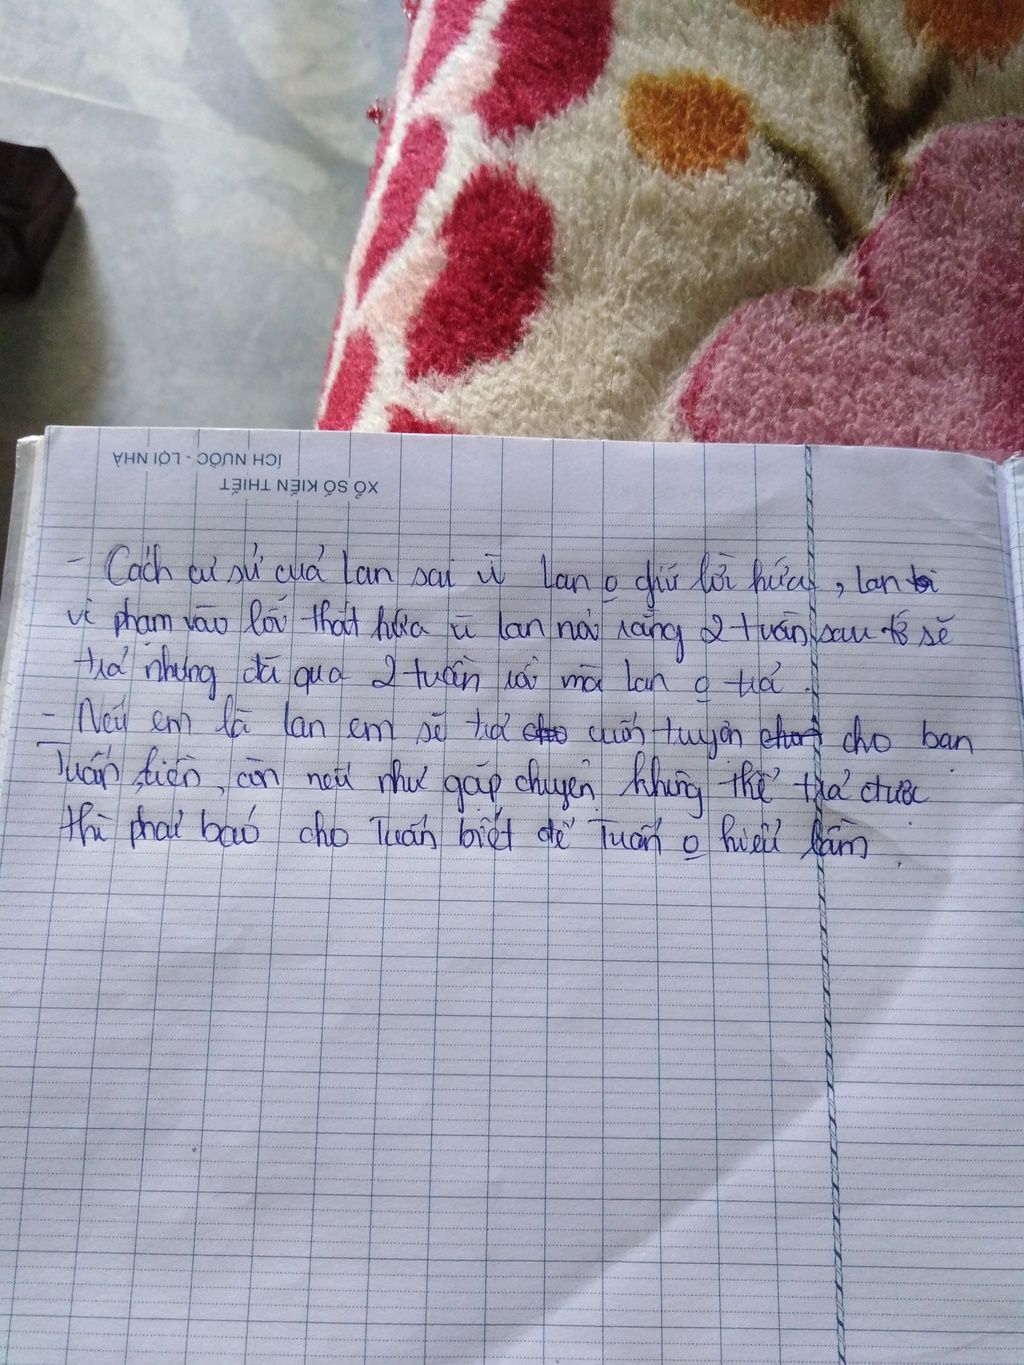 ÍCH NƯỚC - LỢI NHÀ
XỔ SỐ KIẾN THIẾT
- Cách cư sử của Lan sai vì Lan o giữ lời hứa, Lan
vi phạm vào lỗi thất hứa vì Lan nói rằng 2 tuần sau tớ sẽ
trả nhưng đã qua 2 tuần rồi mà Lan o trả.
- Nếu em là Lan em sẽ trả cuốn truyện cho bạn
Tuấn liền, còn nếu như gặp chuyện không thể trả được
thì phải báo cho Tuấn biết để Tuấn o hiểu lầm.